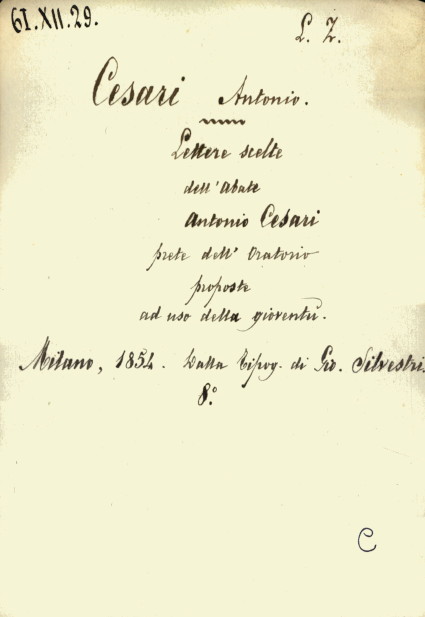 61.XII.29.
L. Z.
Cesari Antonio.
Lettere scelte
dell'Abate
Antonio Cesari
prete dell'Oratorio
proposte
ad uso della gioventù.
Milano, 1854. Dalla Tipog. di Gio. Silvestri.
8.°
C